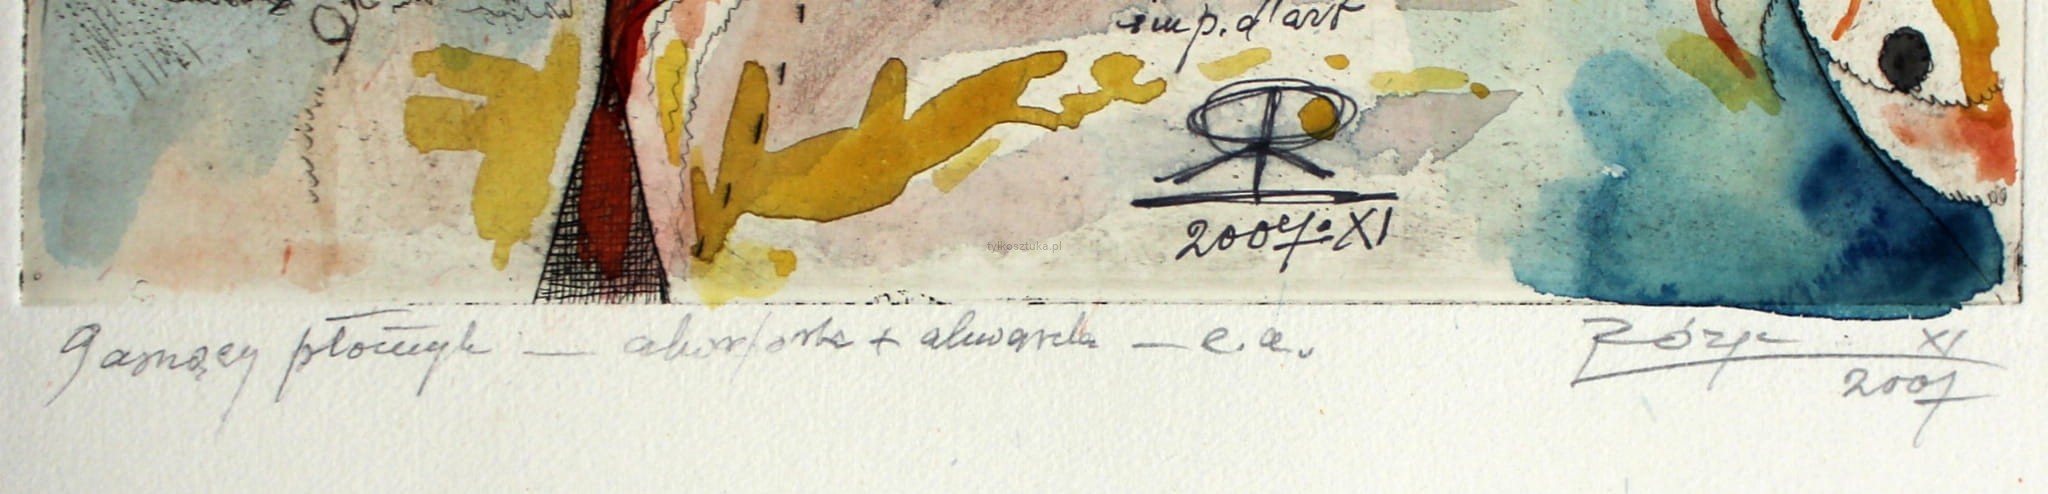 imp. d'art
2007. XI
tylkosztuka.pl
Gasnący płomyk — akwaforta + akwarela — e.a.
XI
2007